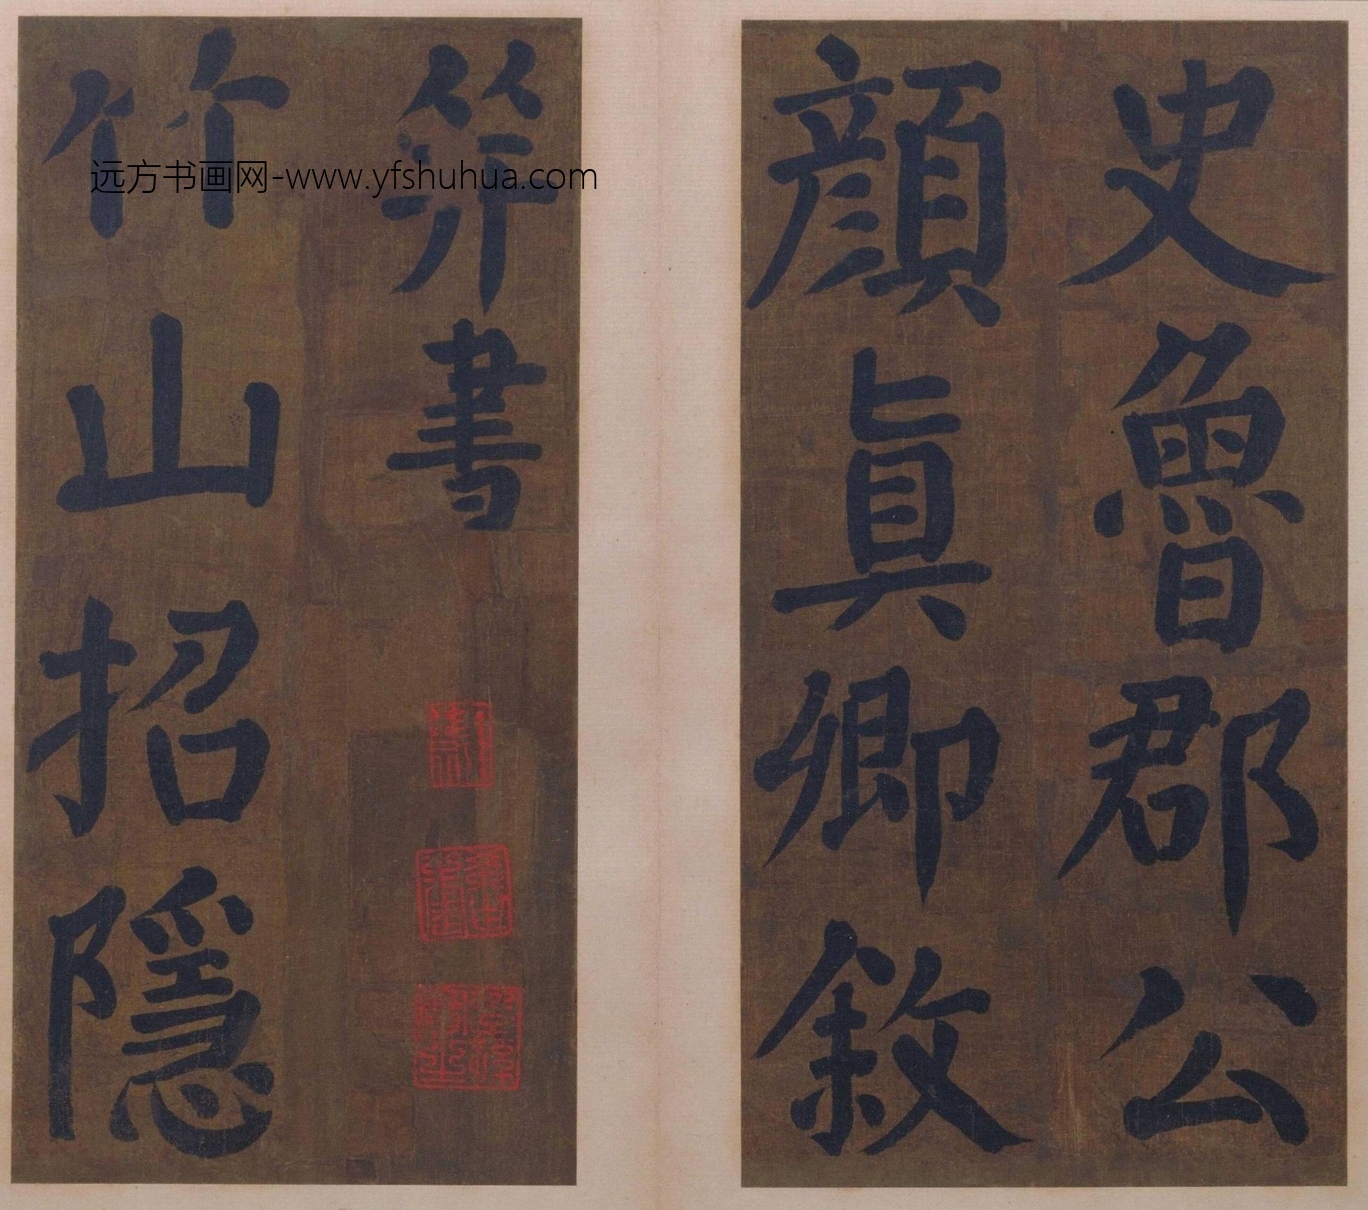 史魯郡公
顔眞卿敘
并書
竹山招隱
远方书画网-www.yfshuhua.com